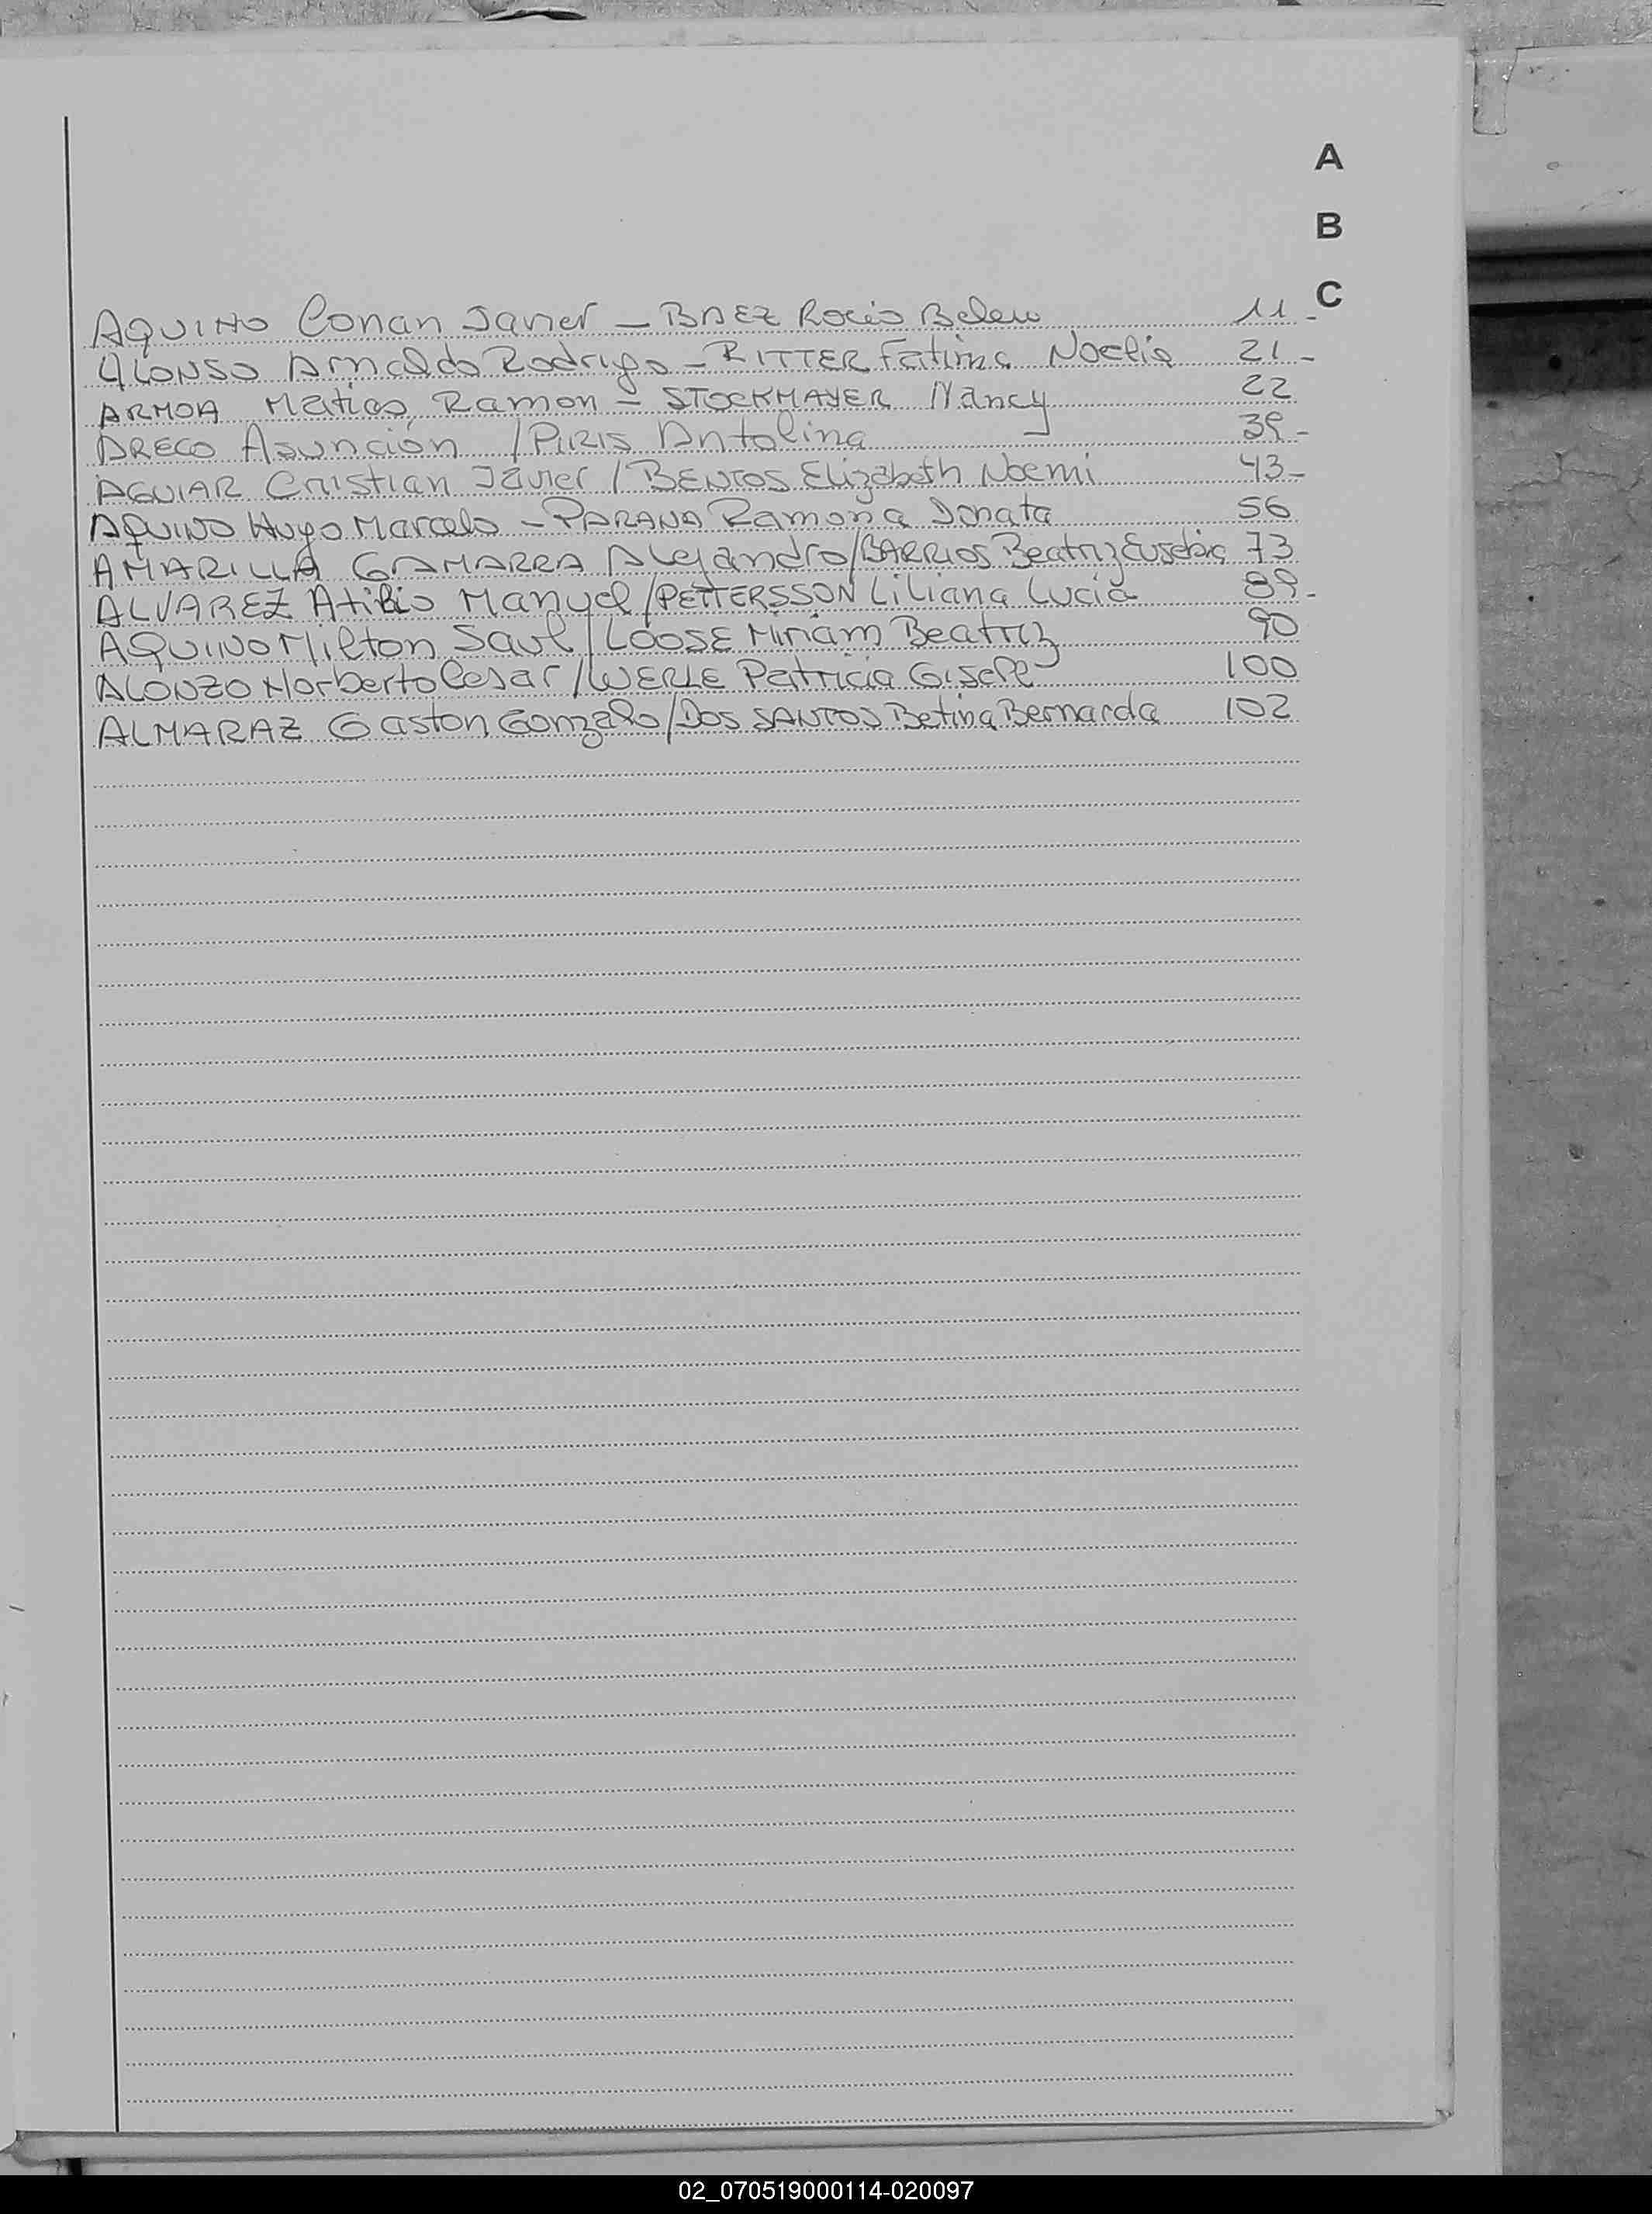 A
B
C
AQUINO Conan Javier - BAEZ Rocio Belen 11 -
ALONSO Arnaldo Rodrigo - RITTER Fatima Noelia 21 -
ARMOA Matias Ramon - STOCKMAYER Nancy 22
ARECO Asunción / PIRIS Antolina 39 -
AGUIAR Cristian Javier / BENTOS Elizabeth Noemi 43 -
AQUINO Hugo Marcelo - PARANA Ramona Donata 56
AMARILLA GAMARRA Alejandro / BARRIOS Beatriz Eusebia 73
ALVAREZ Atilio Manuel / PETTERSSON Liliana Lucia 89 -
AQUINO Milton Saul / LOOSE Miriam Beatriz 90
ALONZO Norberto Cesar / WERLE Patricia Gisele 100
ALMARAZ Gaston Gonzalo / DOS SANTOS Betina Bernarda 102
02_070519000114-020097